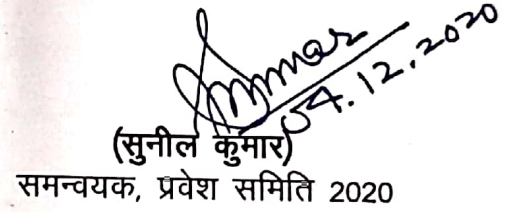 04.12.2020
(सुनील कुमार)
समन्वयक, प्रवेश समिति 2020